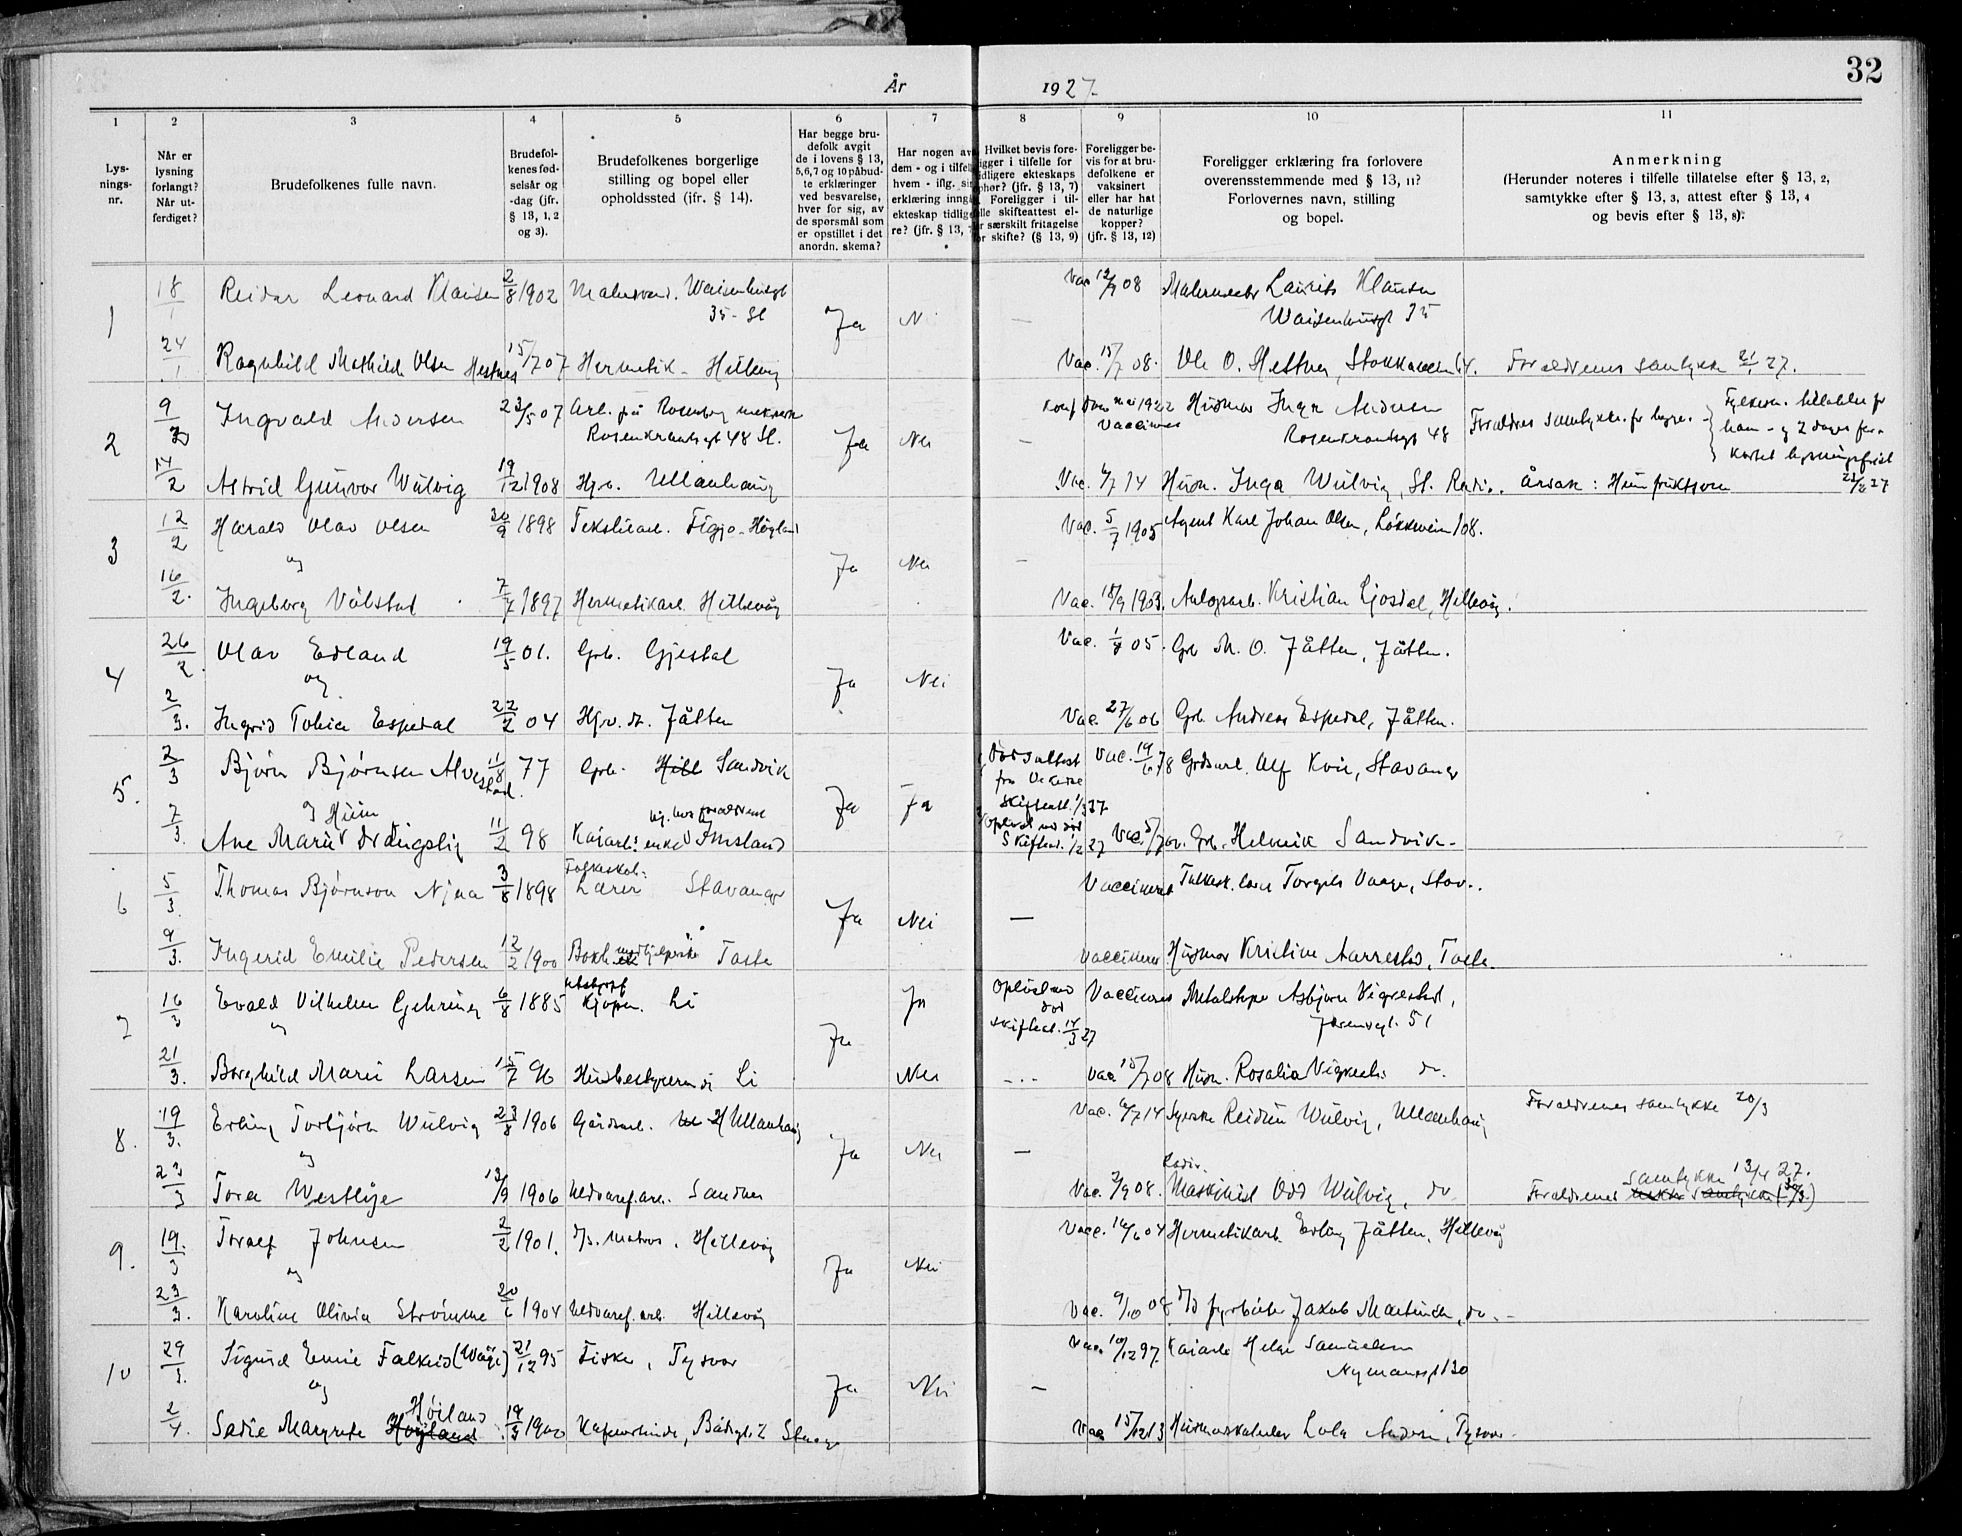 År 1927.
32
1 2 3 4 5 6 7 8 9 10 11
Lys-
nings-
nr.
Når er
lysning
forlangt?
Når ut-
ferdiget?
Brudefolkenes fulle navn.
Brudefol-
kenes fød-
selsår og
-dag (jfr.
§ 13, 1, 2
og 3).
Brudefolkenes borgerlige
stilling og bopel eller
opholdssted (jfr. § 14).
Har begge bru-
defolk avgit
de i lovens § 13,
5,6,7 og 10 påbud-
te erklæringer
ved besvarelse,
hver for sig, av
de spørsmål som
er opstillet i det
anordn. skema?
Har nogen av
dem - og i tilfelle
hvem - iflg. sin
erklæring inngått
ekteskap tidlige-
re? (jfr. § 13, 7
Hvilket bevis fore-
igger i tilfelle for
tidligere ekteskaps
phør? (jfr. § 13, 7)
Foreligger i til-
lle skifteattest el-
r særskilt fritagelse
or skifte? (§ 13, 9)
Foreligger be-
vis for at bru-
defolkene er
vaksinert
eller har hat
de naturlige
kopper?
(jfr. § 13, 12)
Foreligger erklæring fra forlovere
overensstemmende med § 13, 11?
Forlovernes navn, stilling
og bopel.
Anmerkning
(Herunder noteres i tilfelle tillatelse efter § 13, 2,
samtykke efter § 13, 3, attest efter § 13, 4
og bevis efter § 13, 8).
1 18/1 Reidar Leonard Klausen 2/8 1902 Malersvend. Waisenhusgt
35 - St Ja N — Vac 12/9 08 Malermester Laurits Klausen
Waisenhusgt 35
24/1 Ragnhild Mathilde Olsen Hestnes 15/7 07 Hermetik - Hillevåg Vac. 15/7 08. Ole O. Hestnes, Stokkaveien 14. Forældrenes samtykke 21/1 27.
2 9/2 Ingvald Andersen 23/5 07 Arb. på Rosenberg mek
Rosenkrantzgt 48 St. Ja Nei — Konf. mai 1922
Vaccineret Husmor Inga Andersen
Rosenkrantzgt 48 Forældres samtykke for begge. Fylkesm. tillatelse for
ham - og 2 dages for-
kortet lysningsfrist
14/2 Astrid Gunvor Wulvig 19/12 1908 Hjv. Ullanhaug Vac. 6/7 14 Husm. Inga Wulvig, St. Radio. Årsak: Hun fruktsom 23/2 27
3 12/2 Harald Olav Olsen 30/9 1898 Tekstilarb. Figgjo - Høyland Ja Nei — Vac. 5/7 1905 Agent Karl Johan Olsen, Løkkeveien 108.
og
16/2. Ingeborg Vålstad 7/4 1897 Hermetikarb. Hillevåg Vac. 18/9 1903. Anlegsarb. Kristian Ljosdal, Hillevåg.
4 26/2. Olav Edland 19/5 01. Grb. Gjestal Ja Nei Vac. 1/8 05. Grb M. O. Jåtten, Jåtten.
og
2/3. Ingrid Tobia Espedal 22/2 04 Hjv. dt. Jåtten Vac. 27/6 06 Grb. Andreas Espedal, Jåtten.
5. 2/3 Bjørn Bjørnsen Alvestad. 11/8 77 Grb. Hill Sandvik Ja Ja Dødsattest
fra
Skifteatt. 1/3 27. Vac. 19/6 78 Grdsarb. Alf Kvie, Stavanger
og Hum
7/3. Ane Marie Drangslig 11/2 98 Kaiarb. enke hj. hos forældrene
Imsland Opløst ved død
Skifteat. 1/2 27 Vac. 5/7 Grb. Helmik Sandvik.
6 5/3. Thomas Bjørnson Njaa 3/8 1898 Folkeskol.
Lærer Stavanger Ja Nei — Vaccineret Folkesk. lærer Torgils Vaage, Stav..
9/3. Ingerid Emilie Pedersen 12/2 1900 medhjelperske Tasta Vaccineret Husmor Kristine Aarrestad, Tasta.
7 16/3 Evald Vilhelm Gehring 6/8 1885 Kjøpm. Li Ja Ja Opløst ved
død
skifteat. 14/3 27 Vaccineret Metalstøper Asbjørn Vigrestad,
Jærenvegt. 51
og
21/3. Borghild Marie Larsen 15/7 96 Husbestyrerinde Li Nei -.. Vac. 15/7 08 Husm. Rosalia Vigrestad do.
8. 19/3. Erling Torbjørn Wulvig 23/8 1906 Gårdsarb. Ullanhaug Ja Nei — Vac. 6/7 14 Syerske Reidun Wulvig, Ullanhaug Forældrenes samtykke 20/3
og
23/3 Tora Westlye 13/9 1906 Uldvaref.arb. Sandnes Vac. 2/9 08. Radio.
Maskinist Odd Wulvig, do Forældrenes samtykke 13/4 27.
9. 19./3 Toralf Johnsen 2/2 1901. D/s. Matros. Hillevåg Ja Nei Vacc. 16/6 04 Hermetikarb. Erling Jåtten, Hillevåg
og
23/3. Karoline Olivia Strømme 20/6 1904 Uldvaref. arb. Hillevåg Vac. 9/10 08 D/s fyrbøter Jakob Martinsen, do.
10 29/3. Sigurd Emil Falkeid (Wåge) 21/12 95 Fisker, Tysvær Ja Nei — Vac. 10/12 97. Kaiarb Helge Samuelsen
Nymansgt 130
og
2/4. Sadie Margrete Høiland Høyland 19/3 1900 Kafevertinde, Bådsgt. 2 Stavanger Vac 15/12 13 Lola Andersen, Tysvær.